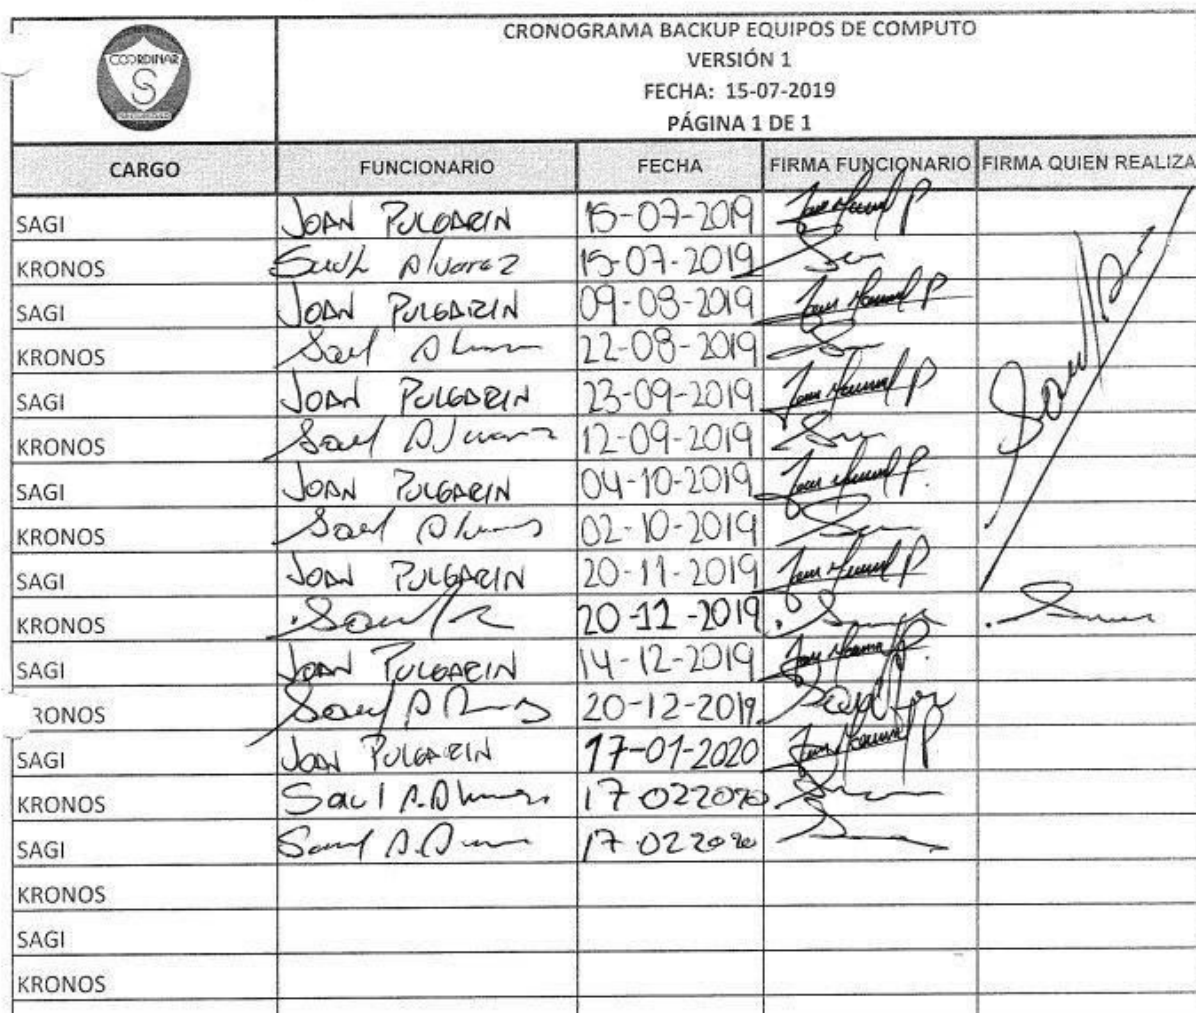 COORDINAR
S
SEGURIDAD
CRONOGRAMA BACKUP EQUIPOS DE COMPUTO
VERSIÓN 1
FECHA: 15-07-2019
PÁGINA 1 DE 1
CARGO FUNCIONARIO FECHA FIRMA FUNCIONARIO FIRMA QUIEN REALIZA
SAGI JOAN PULGARIN 15-07-2019
KRONOS Saul Alvarez 15-07-2019
SAGI JOAN PULGARIN 09-08-2019
KRONOS Saul 22-08-2019
SAGI JOAN PULGARIN 23-09-2019
KRONOS Saul Alvarez 12-09-2019
SAGI JOAN PULGARIN 04-10-2019
KRONOS Saul 02-10-2019
SAGI JOAN PULGARIN 20-11-2019
KRONOS Saul 20-11-2019
SAGI JOAN PULGARIN 14-12-2019
RONOS Saul 20-12-2019
SAGI JOAN PULGARIN 17-01-2020
KRONOS Saul A. 17 02 2020
SAGI Saul A. 17 02 2020
KRONOS
SAGI
KRONOS